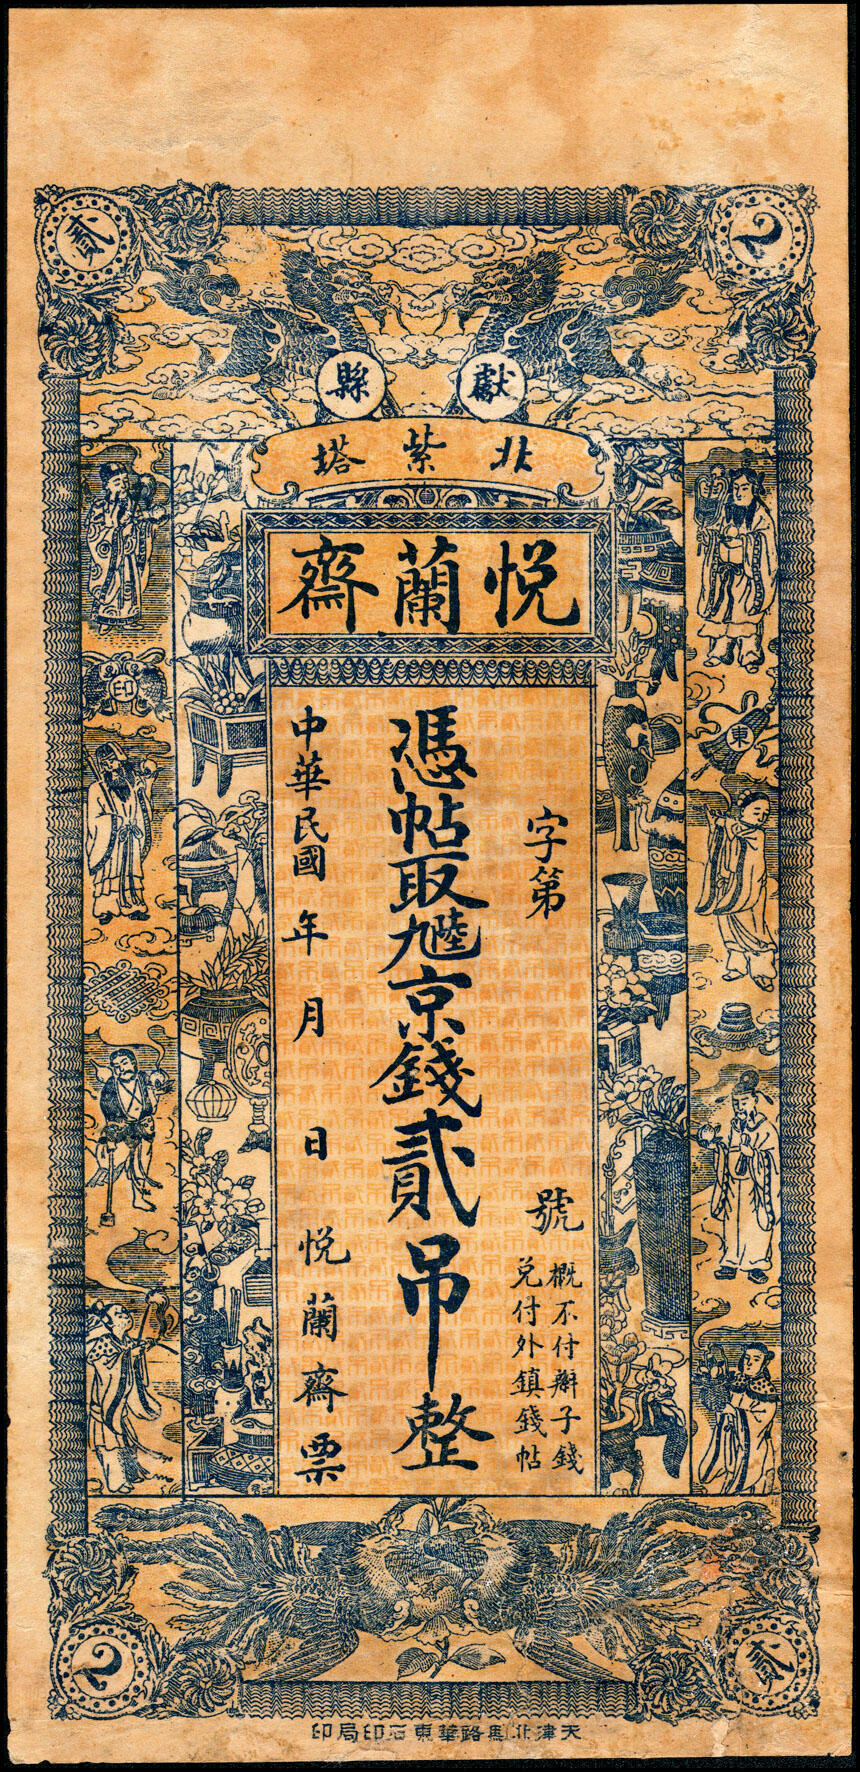 貳
2
獻縣
北紫塔
悅蘭齋
字第 號
概不付辦子錢
兌付外鎮錢帖
憑帖取九陸京錢貳吊整
中華民國 年 月 日 悅蘭齋票
東
印
貳
2
天津北馬路華東石印局印